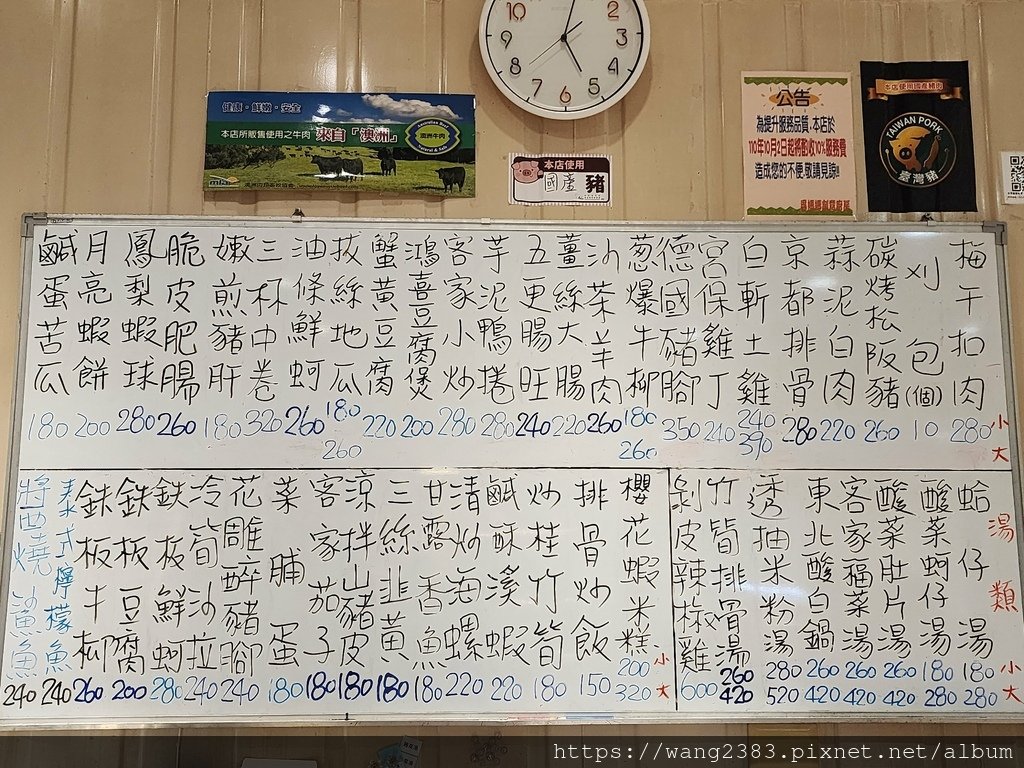 10
11
12
1
2
3
4
5
6
7
8
健康・鮮嫩・安全
本店所販售使用之牛肉 來自「澳洲」
澳洲牛肉
Natural & Safe
mla
本店使用
國產豬
公告
為提升服務品質,本店於
110年10月2日起將酌收10%服務費
造成您的不便,敬請見諒!!
本店使用國產豬肉
TAIWAN PORK
臺灣豬
小
大
梅干扣肉 280
刈包(個) 10
碳烤松阪豬 260
蒜泥白肉 220
京都排骨 280
白斬土雞 240 390
宮保雞丁 210
德國豬腳 350
葱爆牛柳 180 260
沙茶羊肉 260
薑絲大腸 220
五更腸旺 240
芋泥鴨捲 280
客家小炒 280
鴻喜豆腐煲 200
蟹黃豆腐 220
拔絲地瓜 180 260
油條鮮蚵 260
三杯中卷 320
嫩煎豬肝 180
脆皮肥腸 260
鳳梨蝦球 280
月亮蝦餅 200
鹹蛋苦瓜 180
湯類 小 大
蛤仔湯 180 280
酸菜蚵仔湯 180 280
酸菜肚片湯 260 420
客家福菜湯 260 420
東北酸白鍋 260 420
透抽米粉湯 280 520
竹筍排骨湯 260 420
剝皮辣椒雞 600
小 大
櫻花蝦米糕 200 320
排骨炒飯 150
炒桂竹筍 180
鹹酥溪蝦 220
清炒海螺 220
甘露香魚 180
三絲韭黃 180
涼拌山豬皮 180
客家茄子 180
菜脯蛋 180
花雕醉豬腳 240
冷筍沙拉 240
鉄板鮮蚵 280
鉄板豆腐 200
鉄板牛柳 260
泰式檸檬魚 240
將西燒沙魚 240
https://wang2383.pixnet.net/album